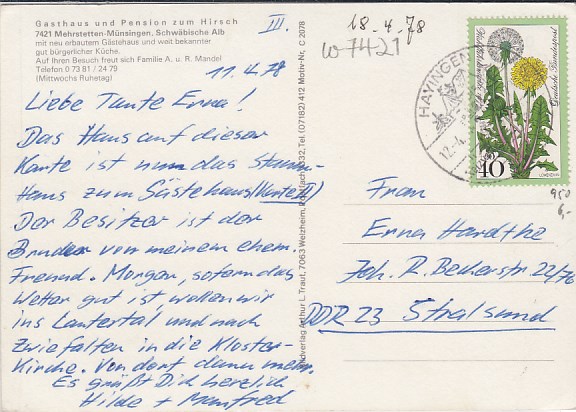 Gasthaus und Pension zum Hirsch
7421 Mehrstetten-Münsingen, Schwäbische Alb
mit neu erbautem Gästehaus und weit bekannter
gut bürgerlicher Küche.
Auf Ihren Besuch freut sich Familie A. u. R. Mandel
Telefon 0 73 81 / 24 79
(Mittwochs Ruhetag)
III.
11.4.78
Liebe Tante Erna!
Das Haus auf dieser
Karte ist nun das Stamm-
Haus zum Gästehaus (Karte II)
Der Besitzer ist der
Bruder von meinem ehem.
Freund. Morgen, sofern das
Wetter gut ist, wollen wir
ins Lautertal und nach
Zwiefalten in die Kloster-
Kirche. Von dort dann mehr.
Es grüßt Dich herzlich
Hilde + Manfred
Bildverlag Arthur L. Traut, 7063 Welzheim, Postfach 1332, Tel. (07182) 412 Motiv-Nr. C 2078
18-4-78
W-7421
HAYINGEN
12.-4.
Deutsche Bundespost
40
LÖWENZAHN
950
6,-
Frau
Erna Hardthe
Joh. R. Becherstr 22/76
DDR 23 Stralsund